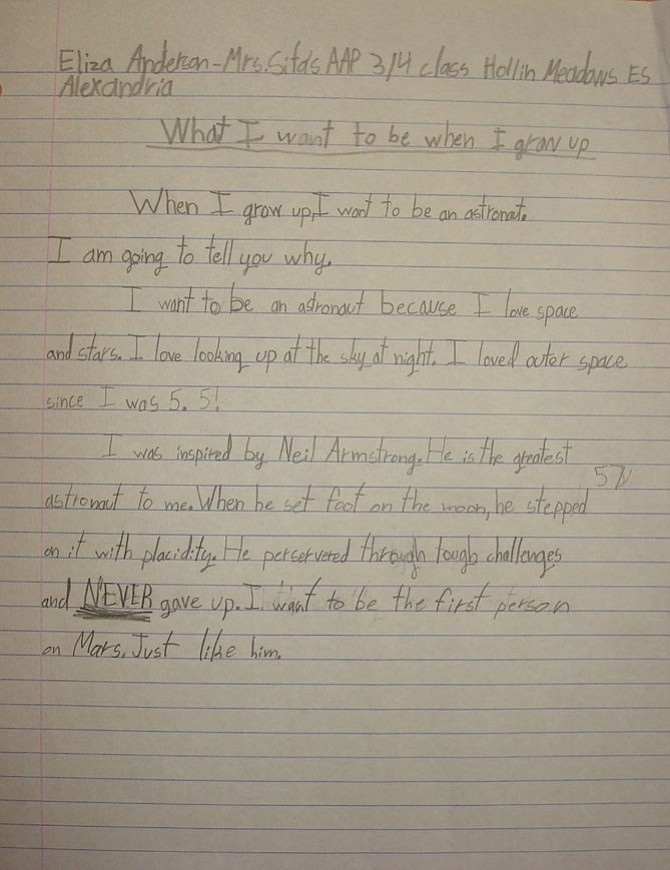 Eliza Anderson-Mrs. AAP 3/4 class Hollin Meadows ES
Alexandria
What I want to be when I grow up
When I grow up, I want to be an astronat.
I am going to tell you why.
I want to be an astronaut because I love space
and stars. I love looking up at the sky at night. I loved outer space
since I was 5. 5!
I was inspired by Neil Armstrong. He is the greatest
astronaut to me. When he set foot on the moon, he stepped
on it with placidity. He perservered through tough challenges
and NEVER gave up. I want to be the first person
on Mars. Just like him.